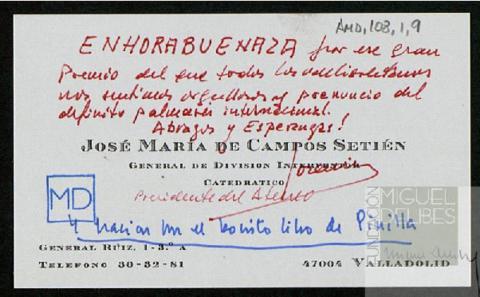 AMD, 108, 1, 9
ENHORABUENAZA por ese gran
Premio del que todos los vallisoletanos
nos sentimos orgullosos y prenuncio del
definito palmarés internacional.
Abrazos y Esperanzas!
JOSÉ MARIA DE CAMPOS SETIÉN
GENERAL DE DIVISION INTERVENTOR
CATEDRATICO
Presidente del Ateneo
MD
Y gracias por el bonito libro de Pinilla
GENERAL RUIZ, 1-3.º A
TELEFONO 30-32-81
47004 VALLADOLID
FUNDACIÓN
MIGUEL
DELIBES